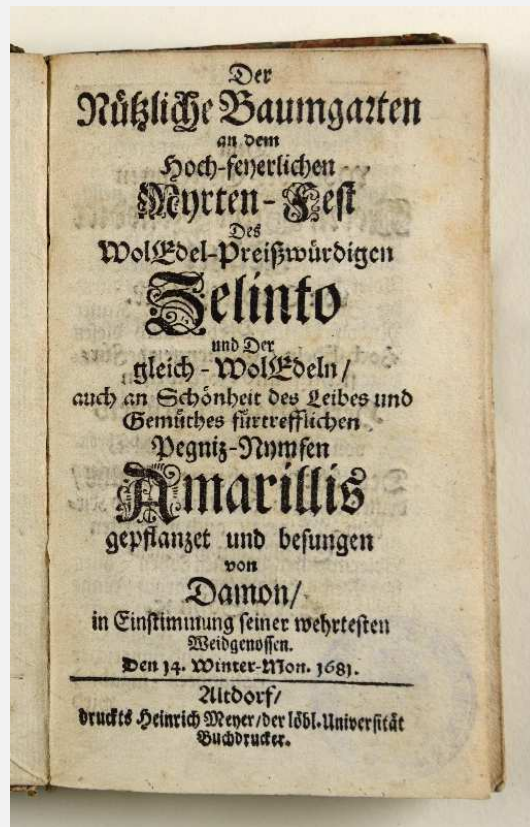 Der
Nützliche Baumgarten
an dem
Hoch-feyerlichen
Myrten-Fest
Des
WolEdel-Preißwürdigen
Selinto
und Der
gleich-WolEdeln/
auch an Schönheit des Leibes und
Gemüthes fürtrefflichen
Pegniz-Nymfen
Amarillis
gepflanzet und besungen
von
Damon/
in Einstimmung seiner wehrtesten
Weidgenossen.
Den 14. Winter-Mon. 1681.
Altdorf/
druckts Heinrich Meyer/der löbl. Universität
Buchdrucker.